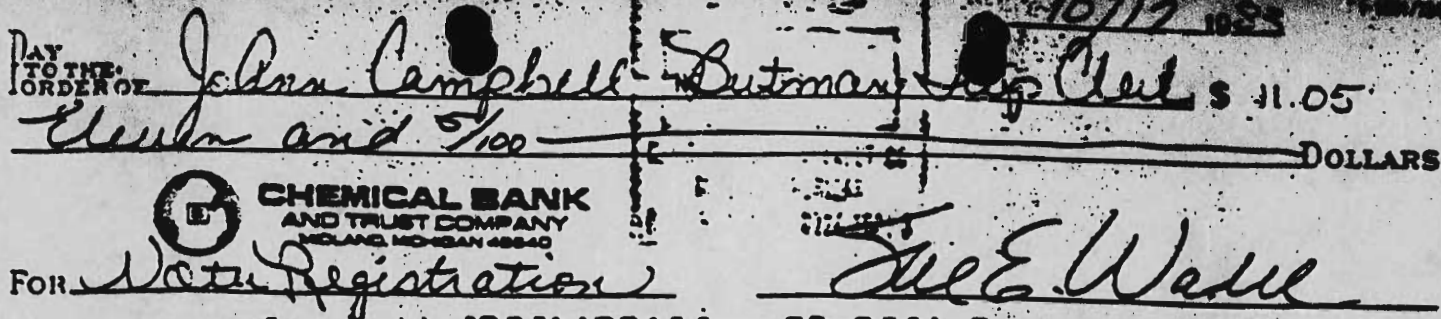 10/17 1988
PAY TO THE ORDER OF JoAnn Campbell Butman Twp Clerk $ 11.05
Eleven and 5/100 DOLLARS
CHEMICAL BANK
AND TRUST COMPANY
MIDLAND, MICHIGAN 48640
FOR Voter Registration Sue E. Wade